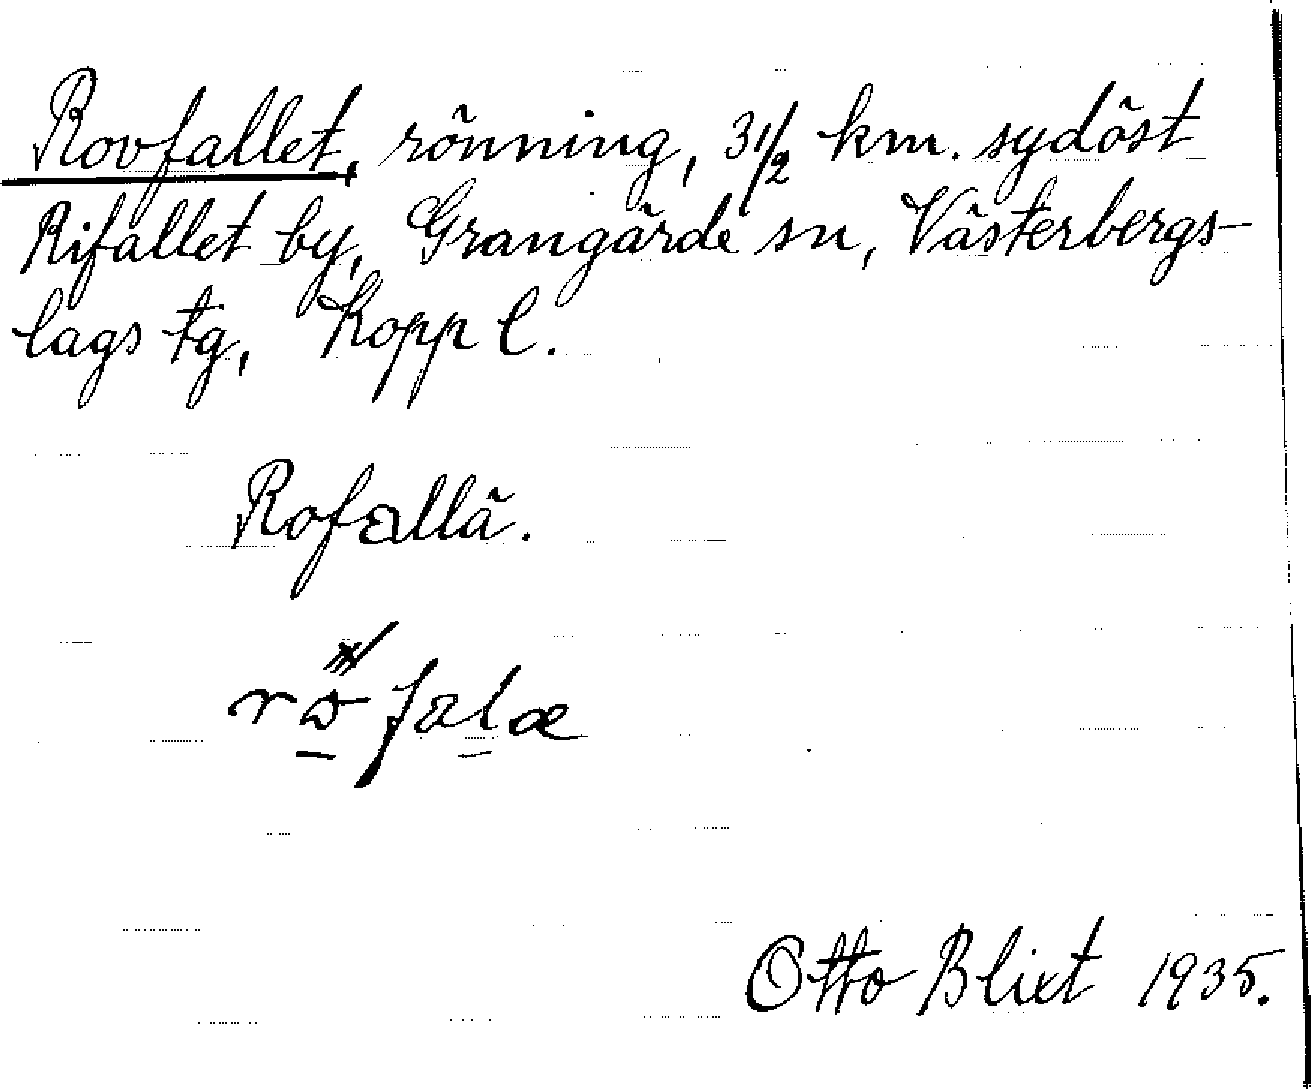 Rovfallet, rönning, 3 1/2 km. sydöst
Rifallet by, Grangärde sn, Västerbergs-
lags tg, Kopp l.
Rofallä.
Otto Blixt 1935.